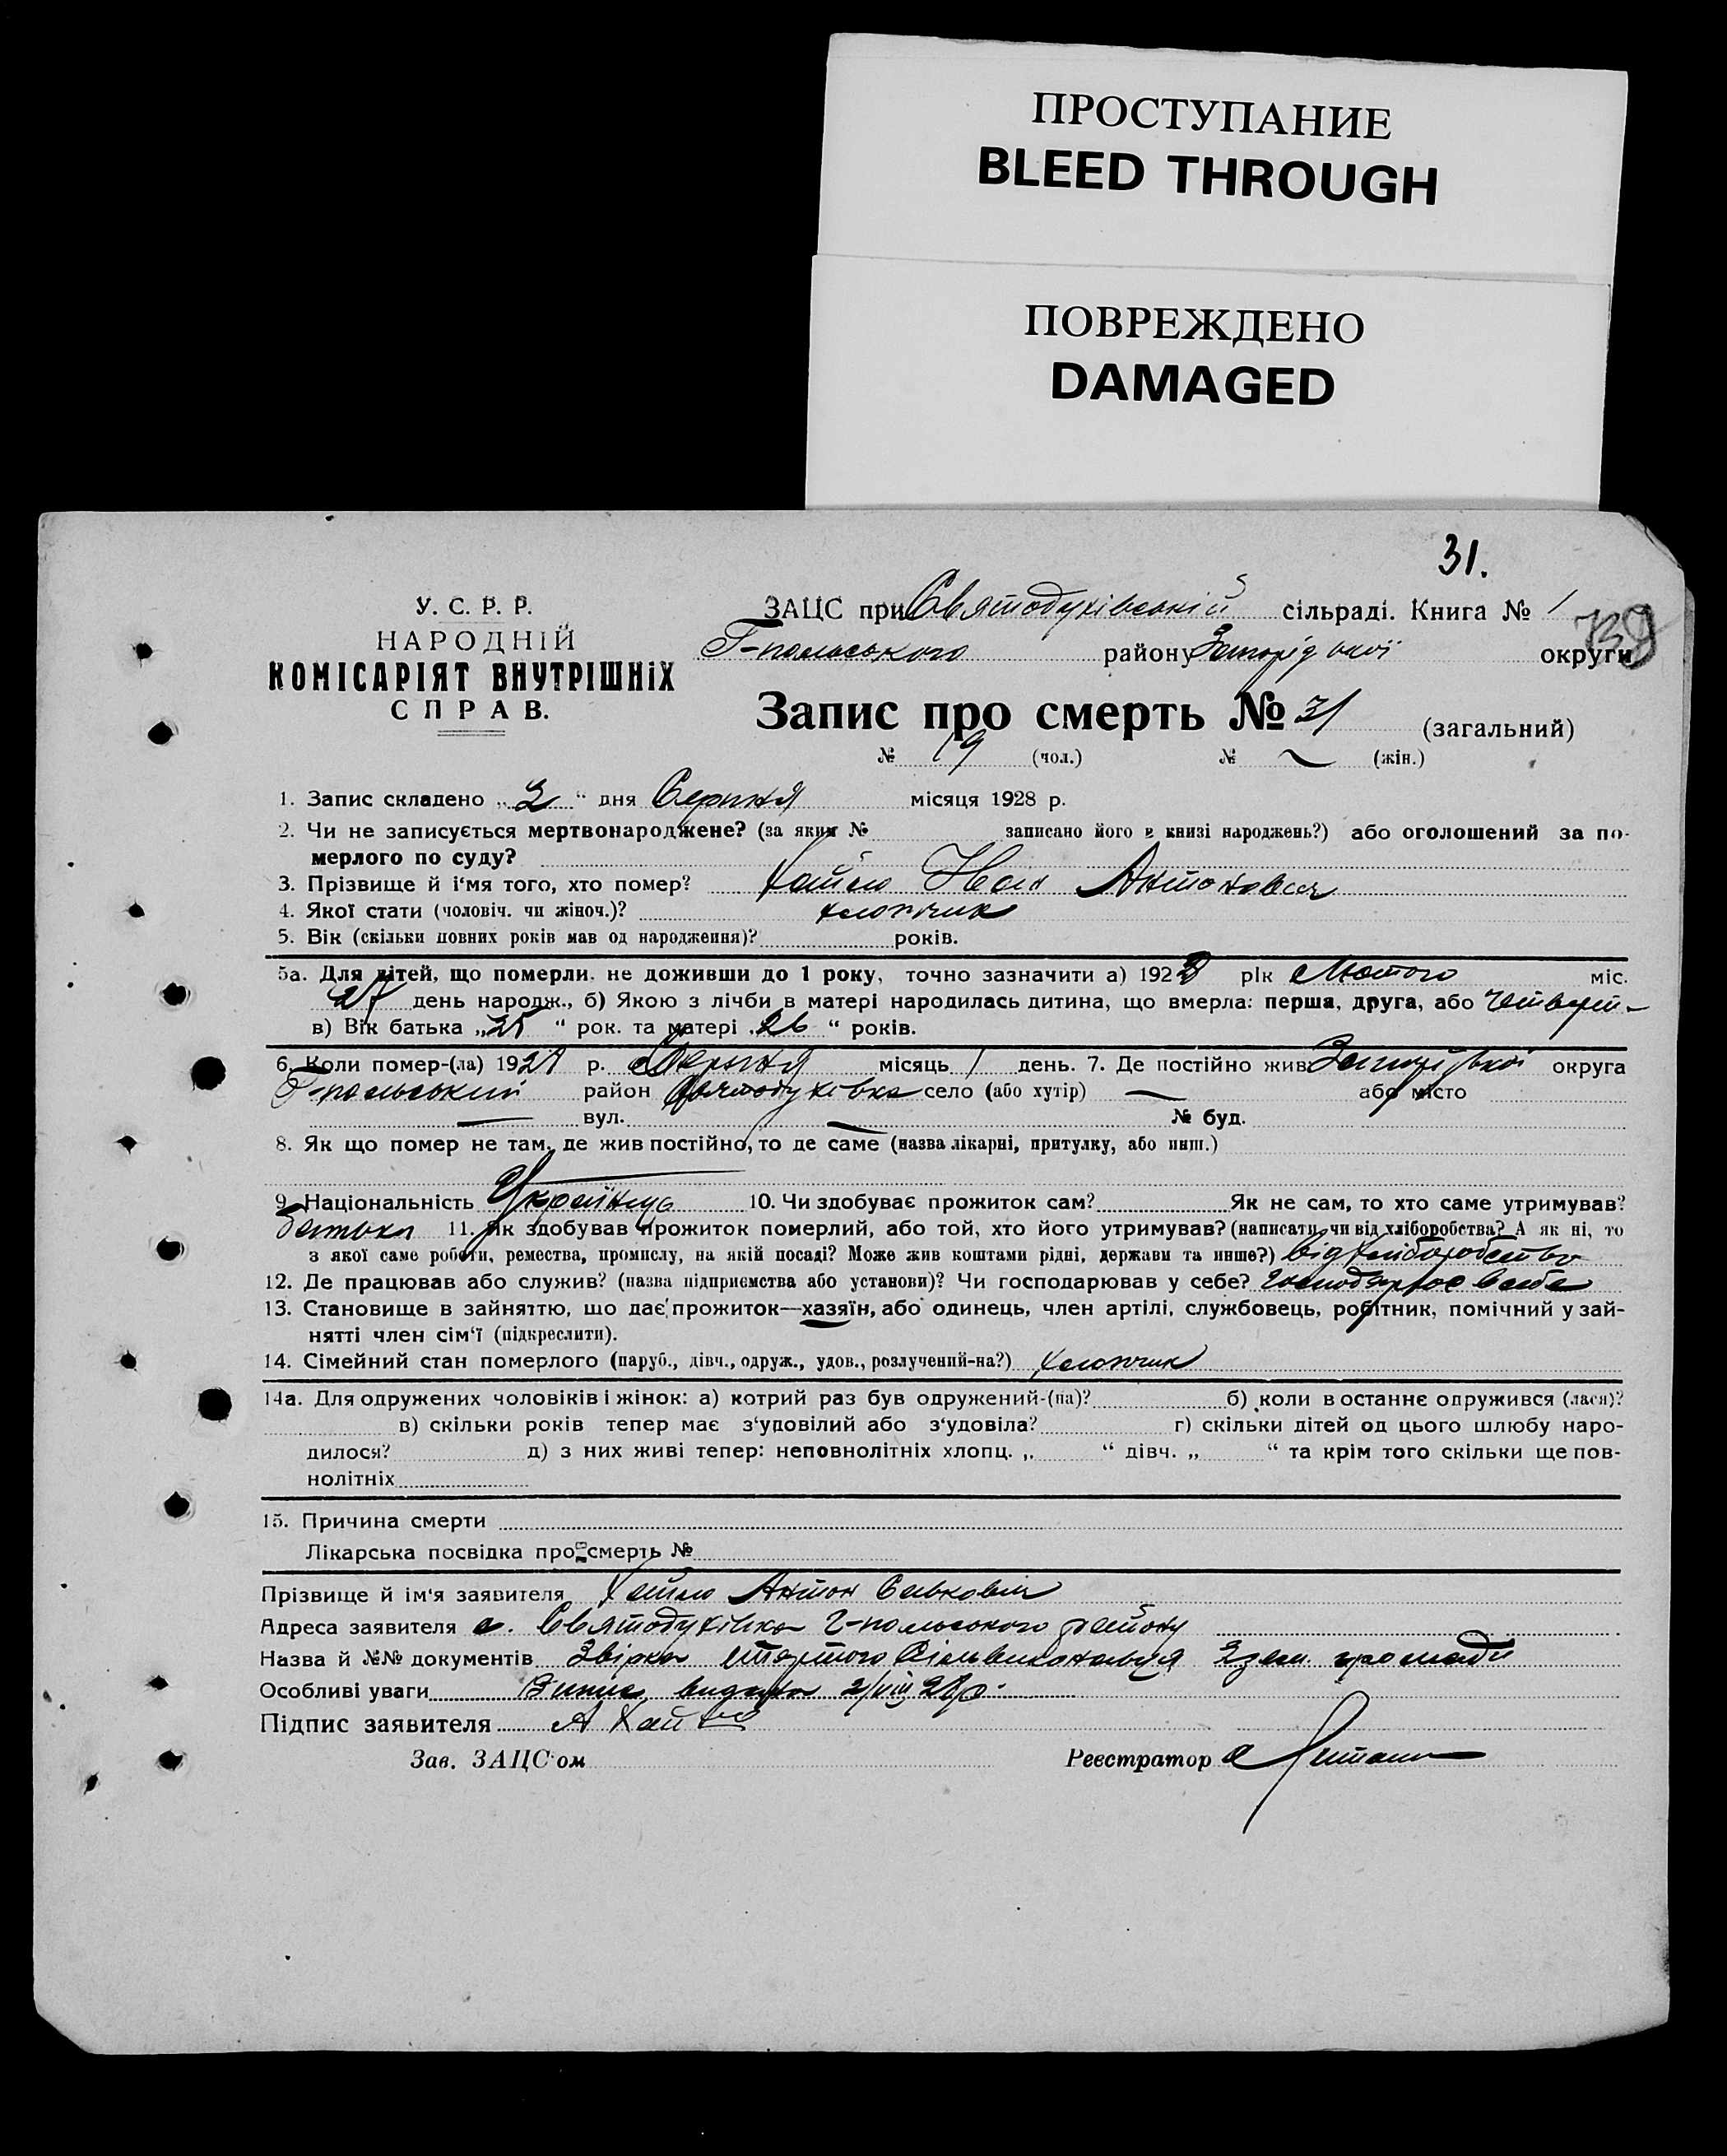 ПРОСТУПАНИЕ
BLEED THROUGH
ПОВРЕЖДЕНО
DAMAGED
31.
739
У. С. Р. Р.
НАРОДНІЙ
КОМІСАРІЯТ ВНУТРІШНІХ
СПРАВ.
ЗАЦС при Святодухівській сільраді. Книга № 1
Г-польського району округи
Запис про смерть № 31 (загальний)
№ 19 (чол.) № ~ (жін.)
1. Запис складено „2“ дня Серпня місяця 1928 р.
2. Чи не записується мертвонароджене? (за яким № записано його в книзі народжень?) або оголошений за по-
мерлого по суду?
3. Прізвище й і'мя того, хто помер? Хайло Іван Антонович
4. Якої стати (чоловіч. чи жіноч.)? хлопчик
5. Вік (скільки повних років мав од народження)? років.
5а. Для дітей, що померли, не доживши до 1 року, точно зазначити а) 1928 рік Лютого міс.
27 день народж., б) Якою з лічби в матері народилась дитина, що вмерла: перша, друга, або четверт-
в) Вік батька „25“ рок. та матері „26“ років.
6. Коли помер-(ла) 1928 р. Серпня місяць 1 день. 7. Де постійно жив округа
Г-польський район Святодухівка село (або хутір) — або місто
— вул. — № буд.
8. Як що помер не там, де жив постійно, то де саме (назва лікарні, притулку, або инш.)
9. Національність Українець 10. Чи здобуває прожиток сам? Як не сам, то хто саме утримував?
батько 11. Як здобував прожиток померлий, або той, хто його утримував? (написати, чи від хліборобства? А як ні, то
з якої саме роботи, ремества, промислу, на якій посаді? Може жив коштами рідні, держави та инше?) від хліборобства
12. Де працював або служив? (назва підприємства або установи)? Чи господарював у себе? господарює в себе
13. Становище в зайняттю, що дає прожиток—хазяїн, або одинець, член артілі, службовець, робітник, помічний у зай-
нятті член сім'ї (підкреслити).
14. Сімейний стан померлого (паруб., дівч., одруж., удов., розлучений-на?) хлопчик
14а. Для одружених чоловіків і жінок: а) котрий раз був одружений-(на)? б) коли в останнє одружився (лася)?
в) скільки років тепер має з'удовілий або з'удовіла? г) скільки дітей од цього шлюбу наро-
дилося? д) з них живі тепер: неповнолітніх хлопц. „ “ дівч. „ “ та крім того скільки ще пов-
нолітніх
15. Причина смерти
Лікарська посвідка про смерть №
Прізвище й ім'я заявителя Хайло Антон Савкович
Адреса заявителя с. Святодухівка Г-польського району
Назва й №№ документів Звірка громади
Особливі уваги Випис видано 2/VIII 28р.
Підпис заявителя А Хайло
Зав. ЗАЦС'ом Реєстратор